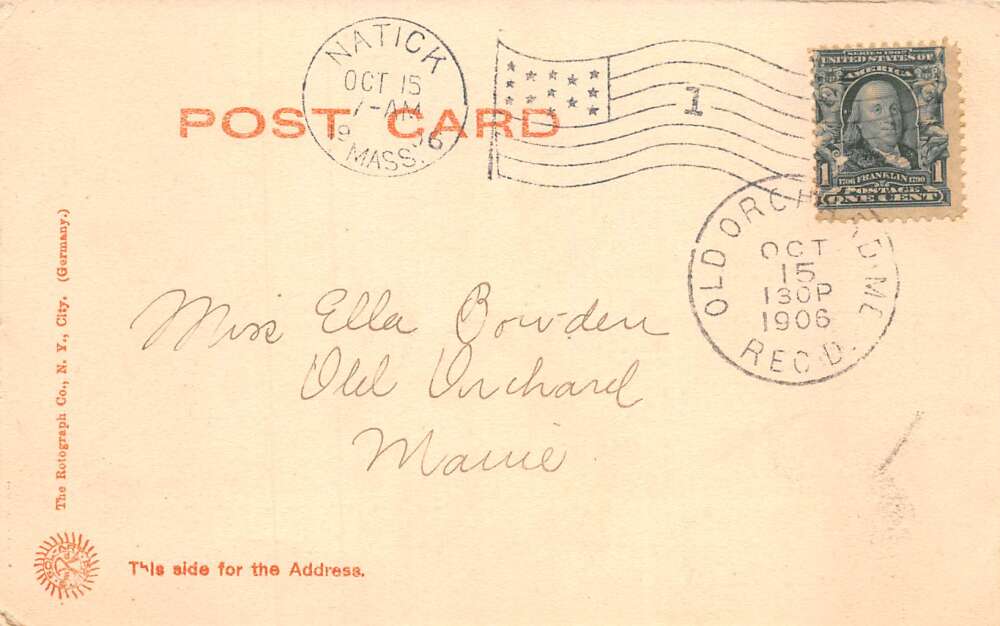 NATICK
OCT 15
7-AM
1906
MASS.
1
SERIES 1902
UNITED STATES OF
AMERICA
1706 FRANKLIN 1790
1 POSTAGE 1
ONE CENT
POST CARD
OLD ORCHARD. ME
OCT
15
130P
1906
REC'D.
Miss Ella Bowden
Old Orchard
Maine
The Rotograph Co., N. Y., City. (Germany.)
SOL-ART
This side for the Address.